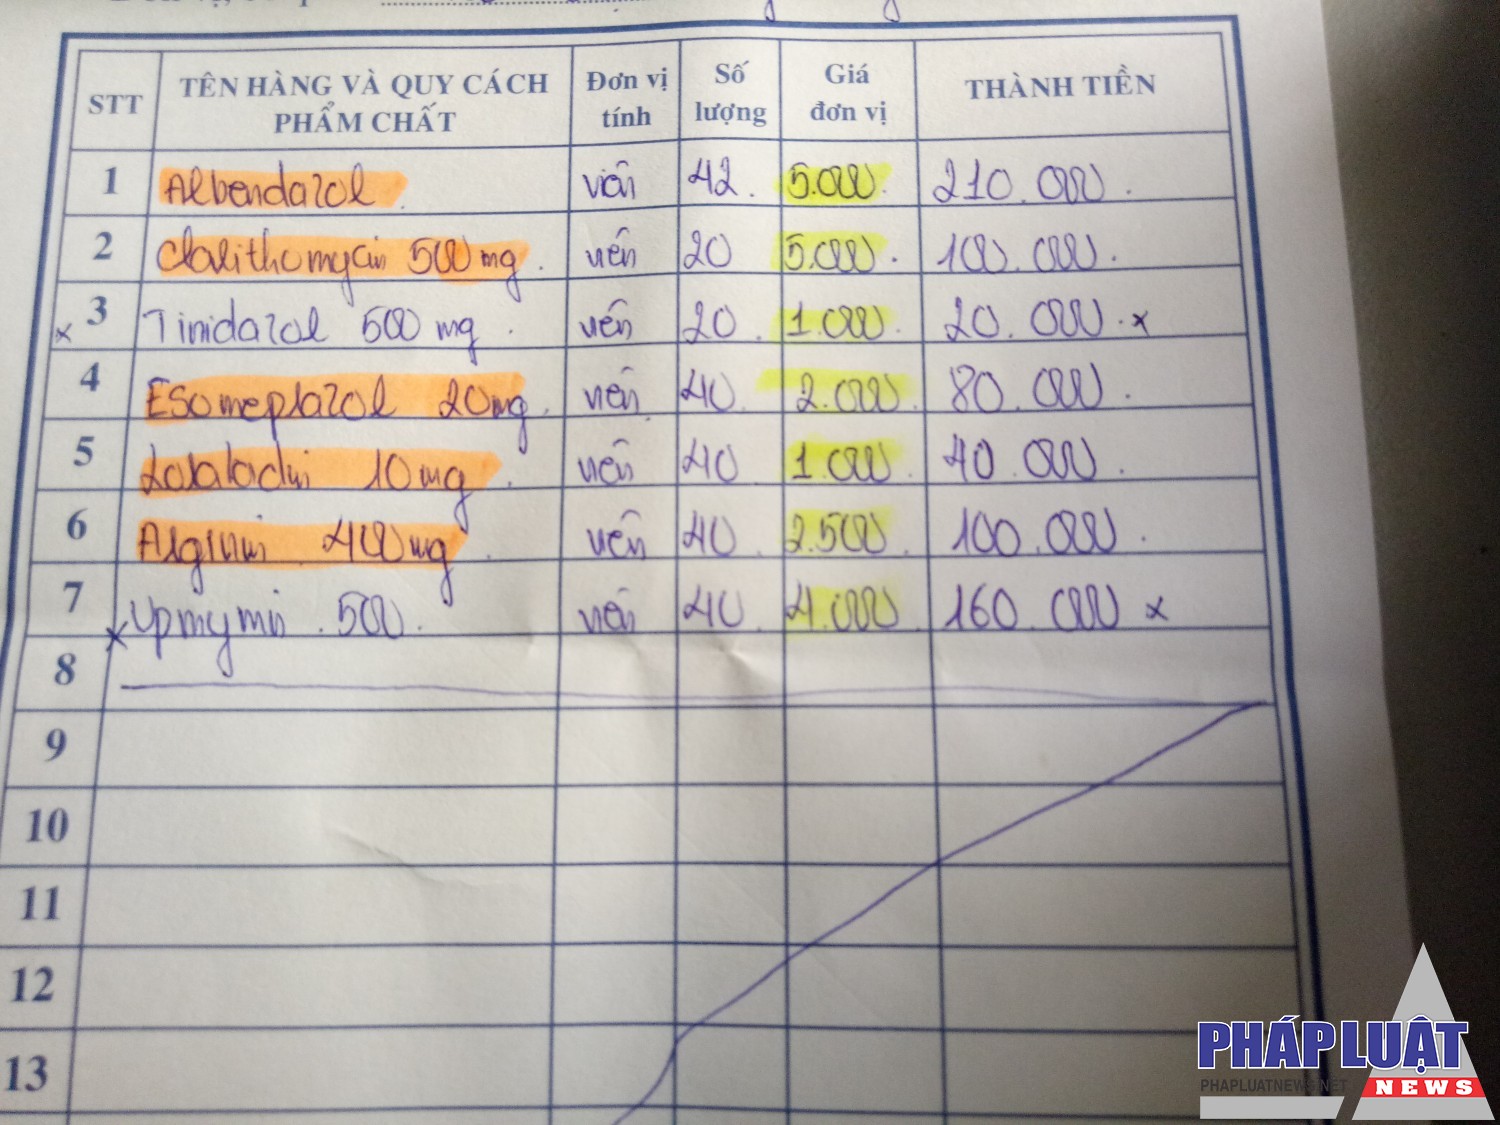 STT TÊN HÀNG VÀ QUY CÁCH PHẨM CHẤT Đơn vị tính Số lượng Giá đơn vị THÀNH TIỀN
1 Albendazol viên 42 5.000 210.000
2 Clalithomycin 500mg viên 20 5.000 100.000
x 3 Tinidazol 500mg viên 20 1.000 20.000 x
4 Esomeplazol 20mg viên 40 2.000 80.000
5 Lolatadin 10mg viên 40 1.000 40.000
6 Alginin 400mg viên 40 2.500 100.000
7 x 500 viên 40 4.000 160.000 x
8
9
10
11
12
13
PHÁP LUẬT
PHAPLUATNEWS.NET
NEWS